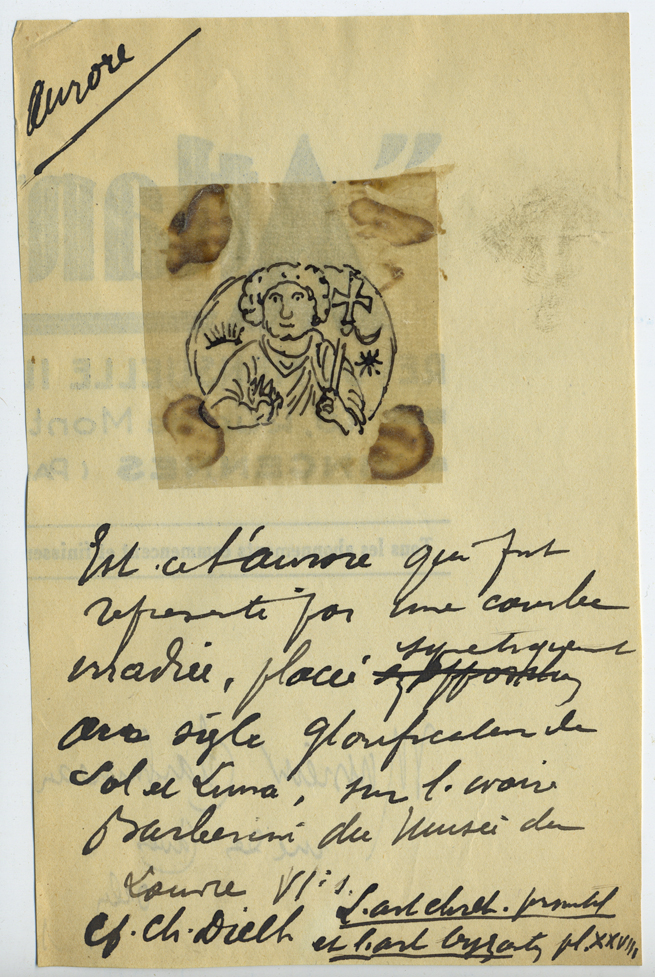 Aurore
Est ce l'aurore qui fut
représenté par une courbe
irradiée, placé symetriquement
aux sigle glorification de
Sol et Luna, sur l. ivoire
Barberini du Musée du
Louvre VIe s.
cf. Ch. Diehl L'art chret. primitif
et l'art byzantin pl. XXVIII